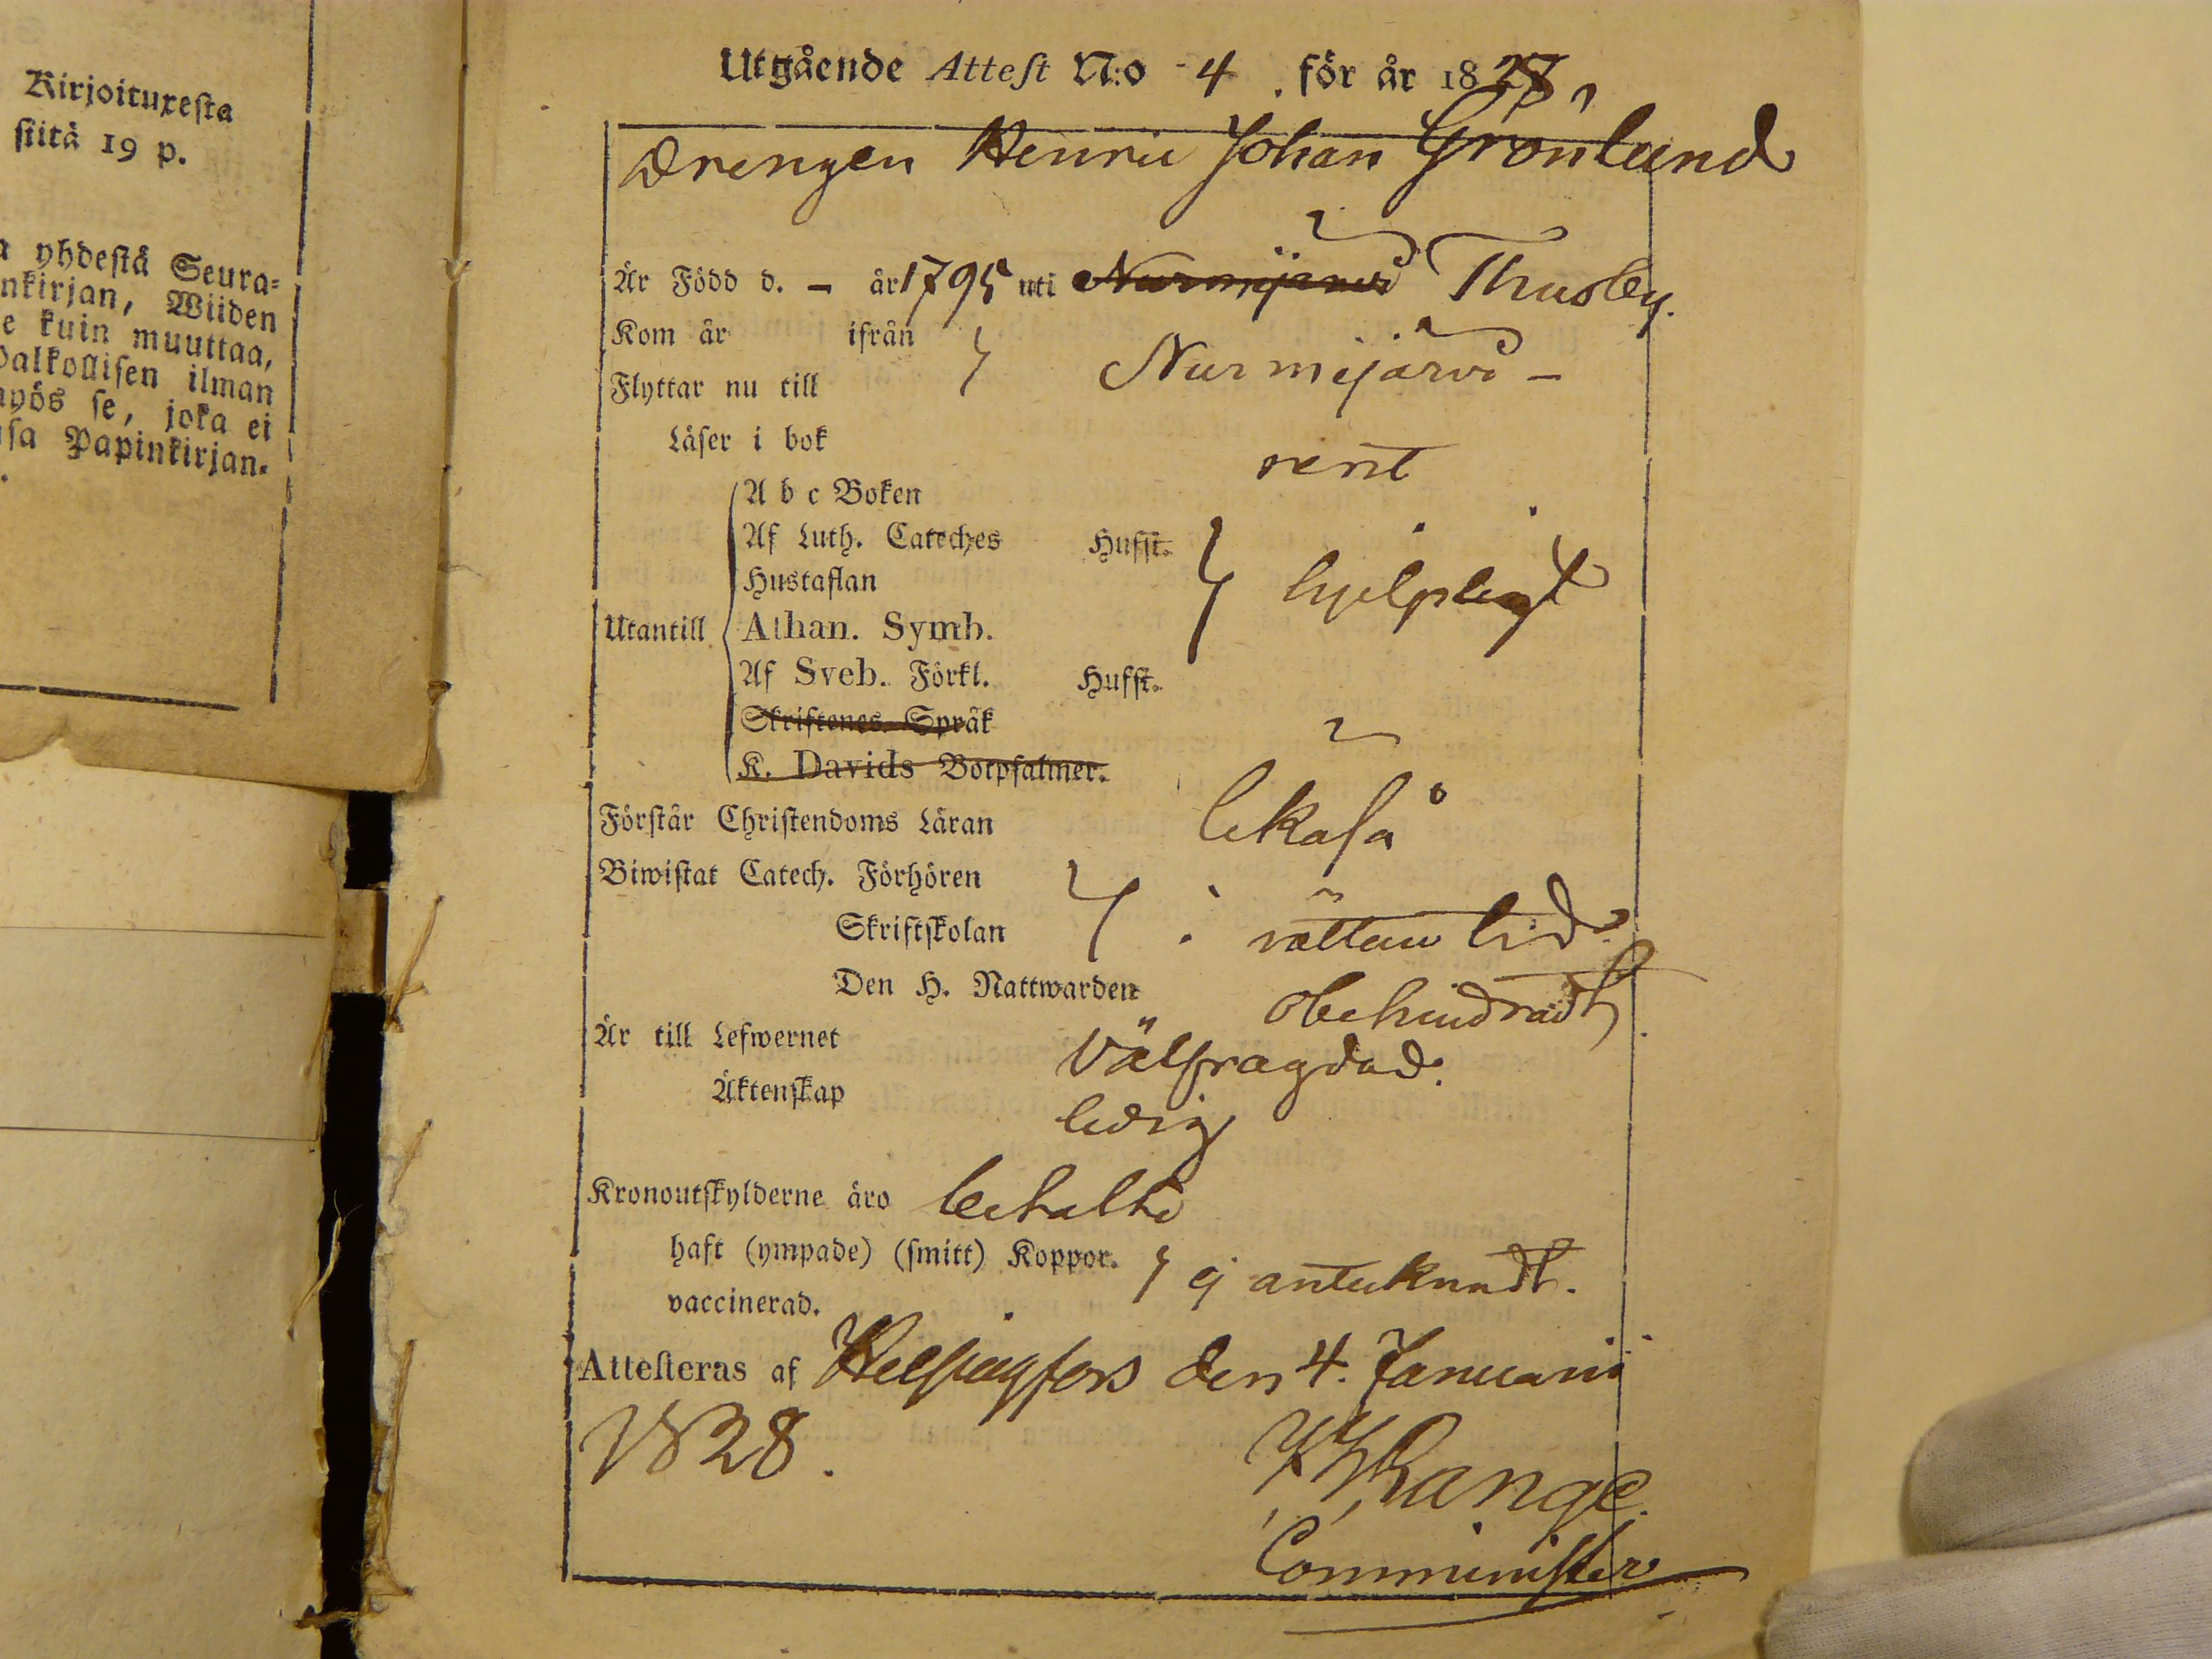 Kirjoituxesta
stitä 19 p.
yhdestä Seura-
nkirjan, Wiiden
e kuin muuttaa,
palkollisen ilman
myös se, joka ei
sa Papinkirjan-
Utgående Attest N:o 4 för år 1828,
Drengen Henric Johan Grönlund
Är Född d. - år 1795 uti Nurmijärvi Thusby.
Kom år ifrån
Nurmijärvi -
Flyttar nu till
Läser i bok rent
A b c Boken
Af Luth. Cateches Hufst.
Hustaflan hjelpligt
Utantill Athan. Symb.
Af Sveb. Förkl. Hufst.
Skriftenes Språk
K. Davids Botpsalmer.
Förstår Christendoms Läran lika så
Biwistat Catech. Förhören
Skriftskolan i rättan tid
Den H. Nattwarden obehindradt
Är till Lefwernet välfrägdad.
Äktenskap ledig
Kronoutskylderne äro betalte
haft (ympade) (smitt) Koppor. ej antecknadt.
vaccinerad.
Attesteras af Helsingfors den 4. Januarii
1828.
Range
Comminister